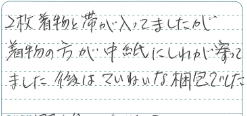 2枚着物と帯が入ってましたが
着物の方が中紙にしわが寄って
ました 後はていねいな梱包でした